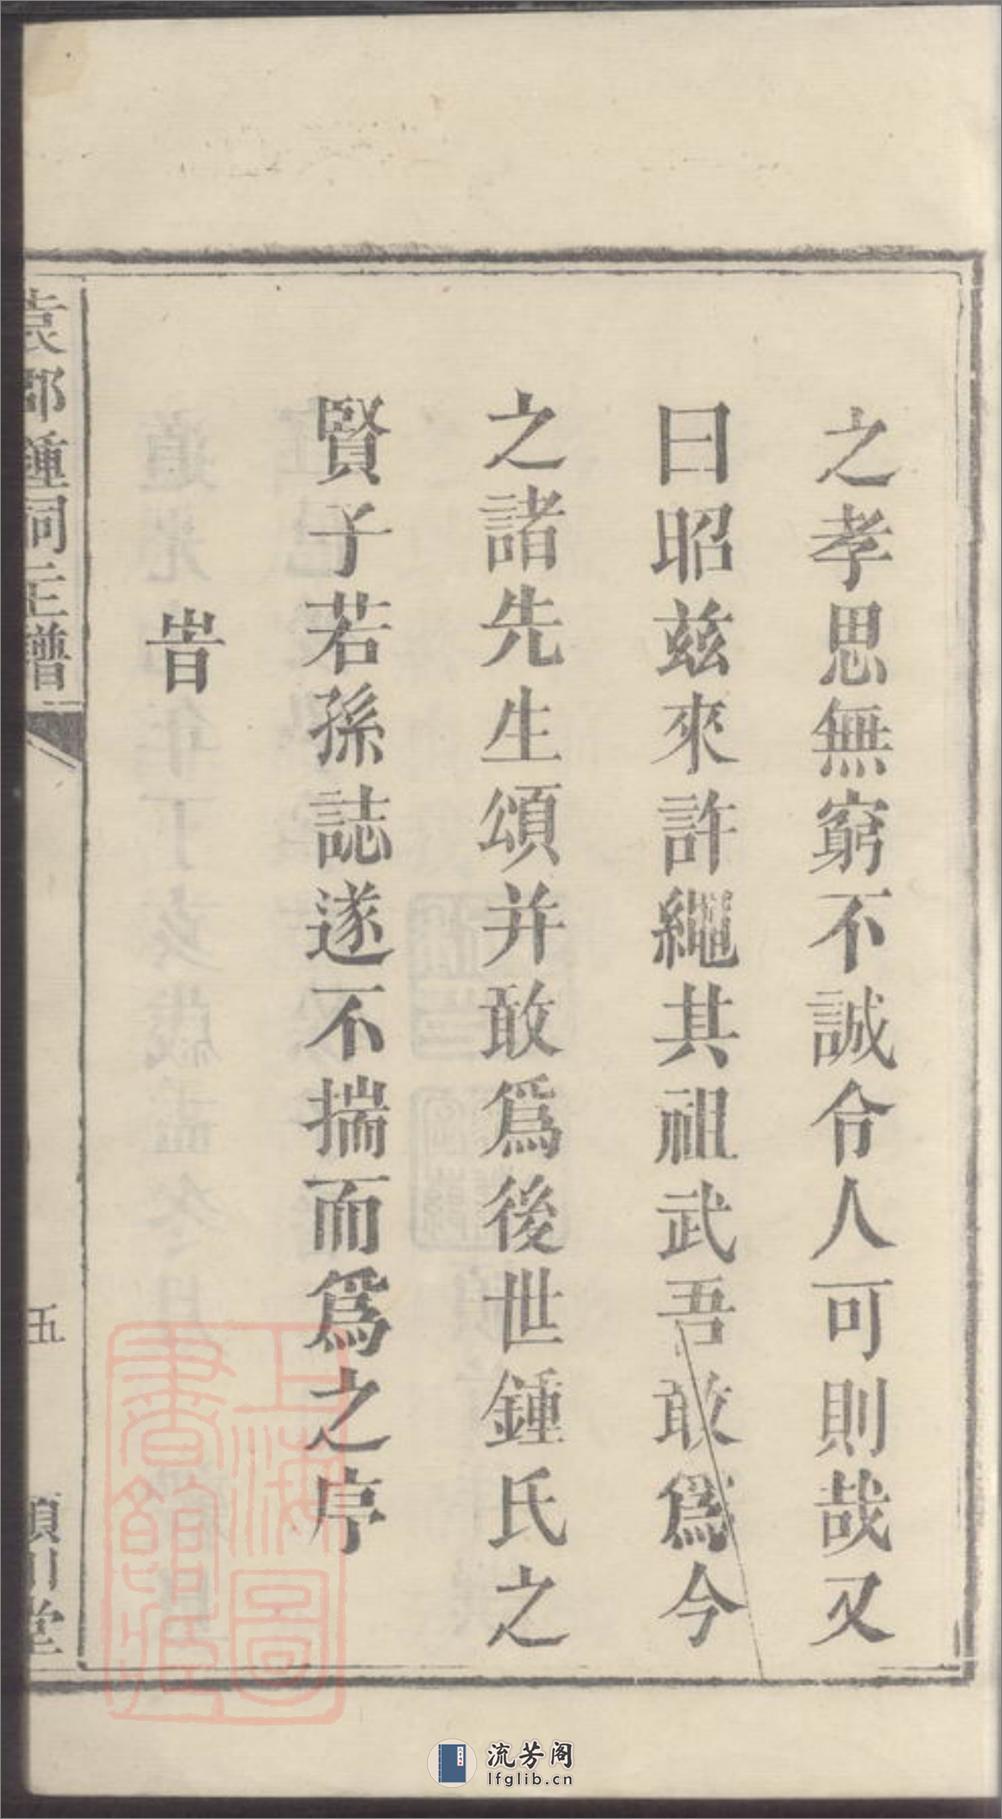 之孝思無窮不誠令人可則哉又
曰昭茲來許繩其祖武吾敢爲今
之諸先生頌并敢爲後世鍾氏之
賢子若孫誌遂不揣而爲之序
旹
袁郡鍾祠主譜
五
潁川堂
上海圖書館藏
流芳阁
lfglib.cn